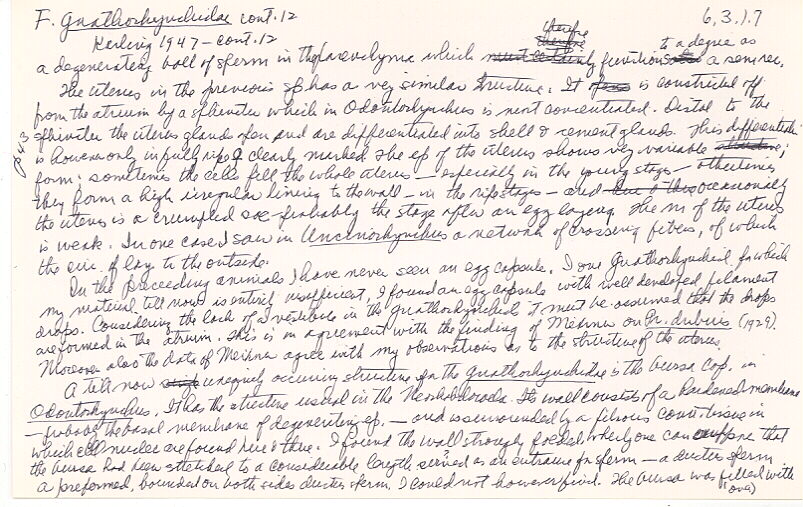 F. Gnathorhynchidae cont. 12
6,3.).7
Karling 1947 - cont. 12
therefore
to a degree as
a degenerating ball of sperm in the parenchyma which functions a sem rec.
The uterus in the previous sp has a very similar structure. It is constricted off
from the atrium by a sphincter which in Odontorhynchus is most concentrated. Distal to the
p 43
sphincter the uterus glands open and are differentiated into shell & cement glands. This differentiation
is however only in fully ripe ♀ clearly marked. The ep of the uterus shows very variable
form; sometimes the cells fill the whole uterus — especially in the young stages — other times
they form a high irregular lining to the wall — in the ripe stages — and occasionally
the uterus is a crumpled sac - probably the stage after an egg laying. The m of the uterus
is weak. In one case I saw in Uncinorhynchus a network of crossing fibers, of which
the circ. f lay to the outside.
In the preceding animals I have never seen an egg capsule. In one Gnathorhynchid for which
my material till now is entirely insufficient, I found an egg capsule with well developed filament
drops. Considering the lack of vestibule in the gnathorhynchids it must be assumed that the drops
are formed in the atrium. This is in agreement with the finding of Meixner on Pr. dubius (1929).
Moreover also the data of Meixner agree with my observations as to the structure of the uterus.
A till now uniquely occurring structure for the Gnathorhynchidae is the bursa cop. in
Odontorhynchus. It has the structure usual in the Neorhabdocoela. Its wall consists of a hardened membrane
— probably the basal membrane of degenerating ep. — and is surrounded by a fibrous conn tissue in
which cell nuclei are found here & there. I found the wall strongly folded whereby one can suppose that
the bursa had been stretched to a considerable length served as an entrance for sperm — a ductus sperm.
a preformed, bounded on both sides ductus sperm. I could not however find. The bursa was filled with
(over)